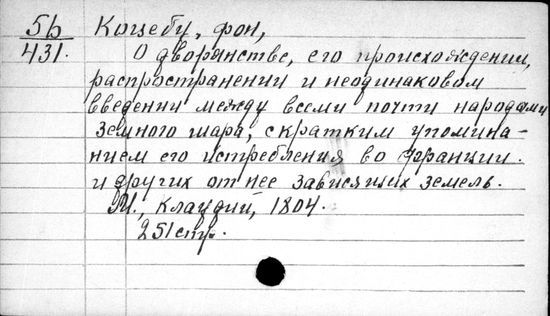 5б Коцебу, фон,
431. О дворянстве, его происхождении,
распространении и неодинаковом
введении между всеми почти народами
земного шара, с кратким упомина-
нием его истребления во Франции.
и других от нее зависящих земель.
М., Клаудий, 1804.
251 стр.